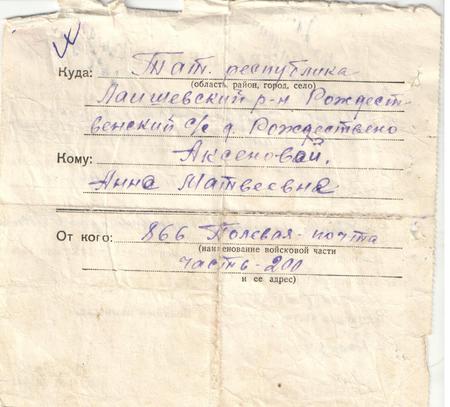 Куда: Тат. республика
(область, район, город, село)
Лаишевский р-н Рождест-
венский с/с д. Рождествено
Кому: Аксеновай,
Анна Матвеевне
От кого: 866 Полевая-почта
(наименование войсковой части
часть-200
и ее адрес)